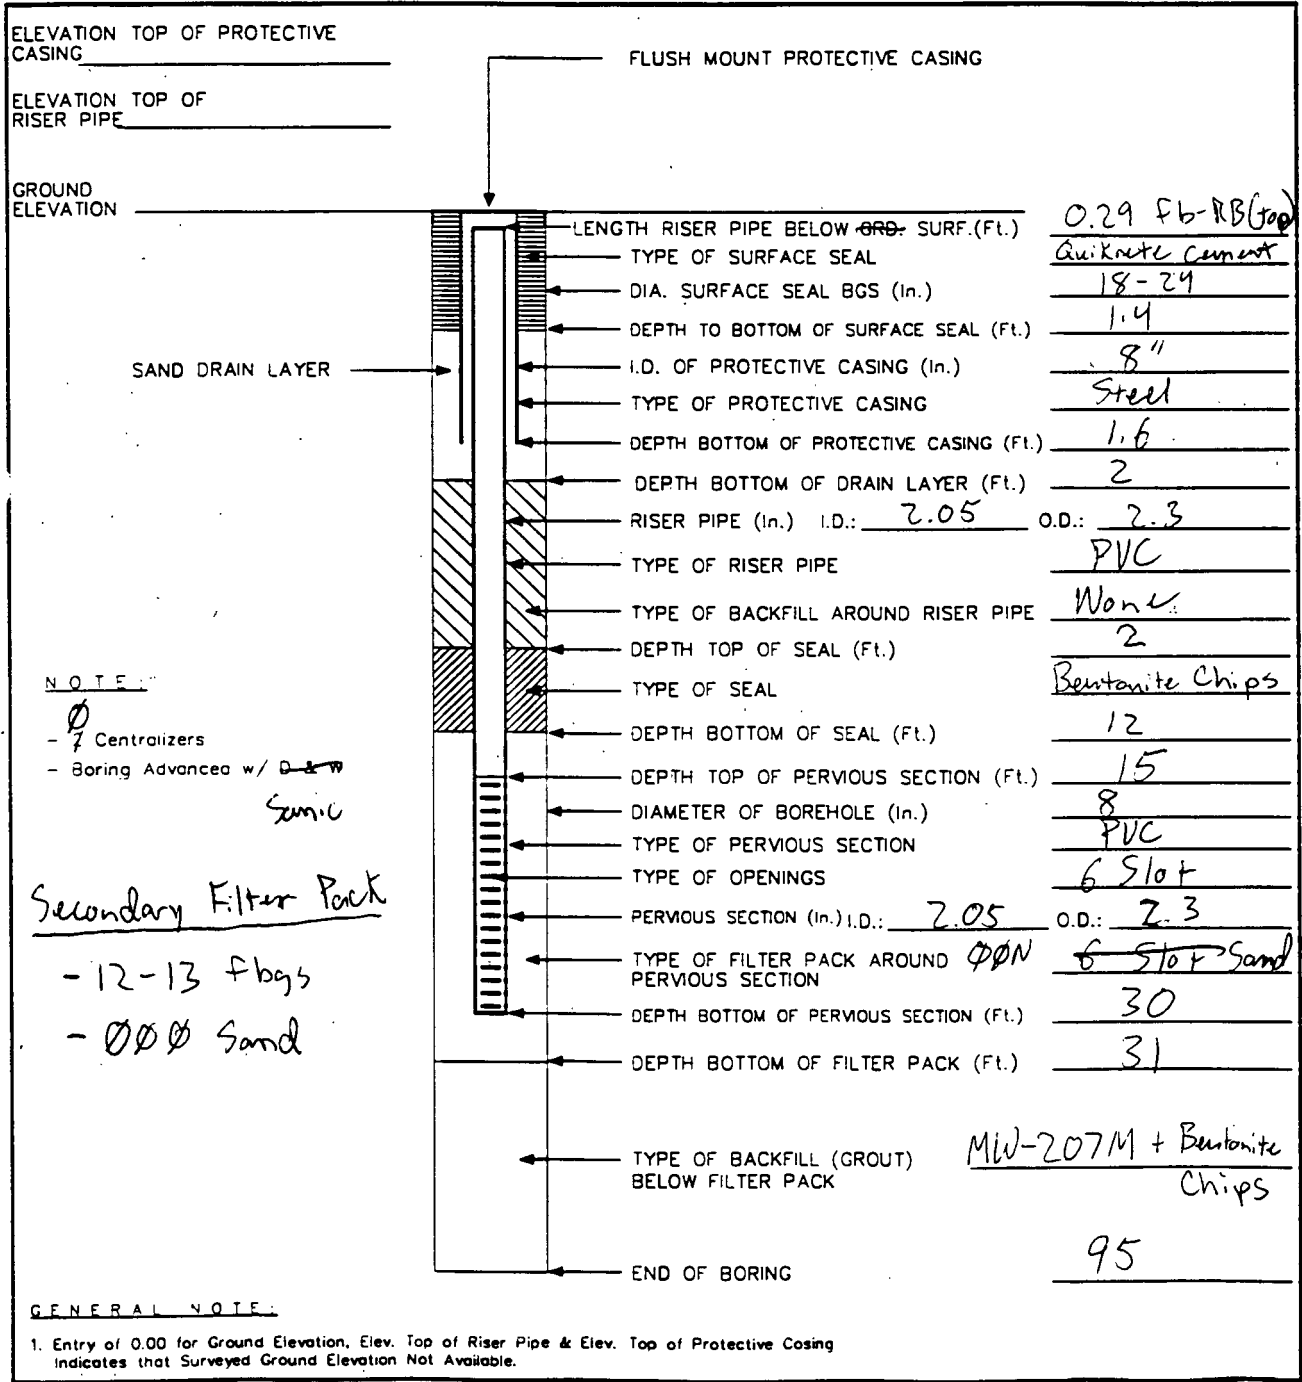 ELEVATION TOP OF PROTECTIVE
CASING
FLUSH MOUNT PROTECTIVE CASING
ELEVATION TOP OF
RISER PIPE
GROUND
ELEVATION
LENGTH RISER PIPE BELOW GRD. SURF.(Ft.) 0.29 Fb-RB(top)
TYPE OF SURFACE SEAL Quikrete Cement
DIA. SURFACE SEAL BGS (In.) 18-24
DEPTH TO BOTTOM OF SURFACE SEAL (Ft.) 1.4
SAND DRAIN LAYER
I.D. OF PROTECTIVE CASING (In.) 8"
TYPE OF PROTECTIVE CASING Steel
DEPTH BOTTOM OF PROTECTIVE CASING (Ft.) 1.6
DEPTH BOTTOM OF DRAIN LAYER (Ft.) 2
RISER PIPE (In.) I.D.: 2.05 O.D.: 2.3
TYPE OF RISER PIPE PVC
TYPE OF BACKFILL AROUND RISER PIPE None
DEPTH TOP OF SEAL (Ft.) 2
TYPE OF SEAL Bentonite Chips
DEPTH BOTTOM OF SEAL (Ft.) 12
DEPTH TOP OF PERVIOUS SECTION (Ft.) 15
DIAMETER OF BOREHOLE (In.) 8
TYPE OF PERVIOUS SECTION PVC
TYPE OF OPENINGS 6 Slot
PERVIOUS SECTION (In.) I.D.: 2.05 O.D.: 2.3
TYPE OF FILTER PACK AROUND ØØN 6 Slot Sand
PERVIOUS SECTION
DEPTH BOTTOM OF PERVIOUS SECTION (Ft.) 30
DEPTH BOTTOM OF FILTER PACK (Ft.) 31
TYPE OF BACKFILL (GROUT) MW-207M + Bentonite
BELOW FILTER PACK Chips
END OF BORING 95
NOTE:
Ø
- 7 Centralizers
- Boring Advanced w/ D & W
Sonic
Secondary Filter Pack
- 12-13 fbgs
- ØØØ Sand
GENERAL NOTE:
1. Entry of 0.00 for Ground Elevation, Elev. Top of Riser Pipe & Elev. Top of Protective Casing
Indicates that Surveyed Ground Elevation Not Available.